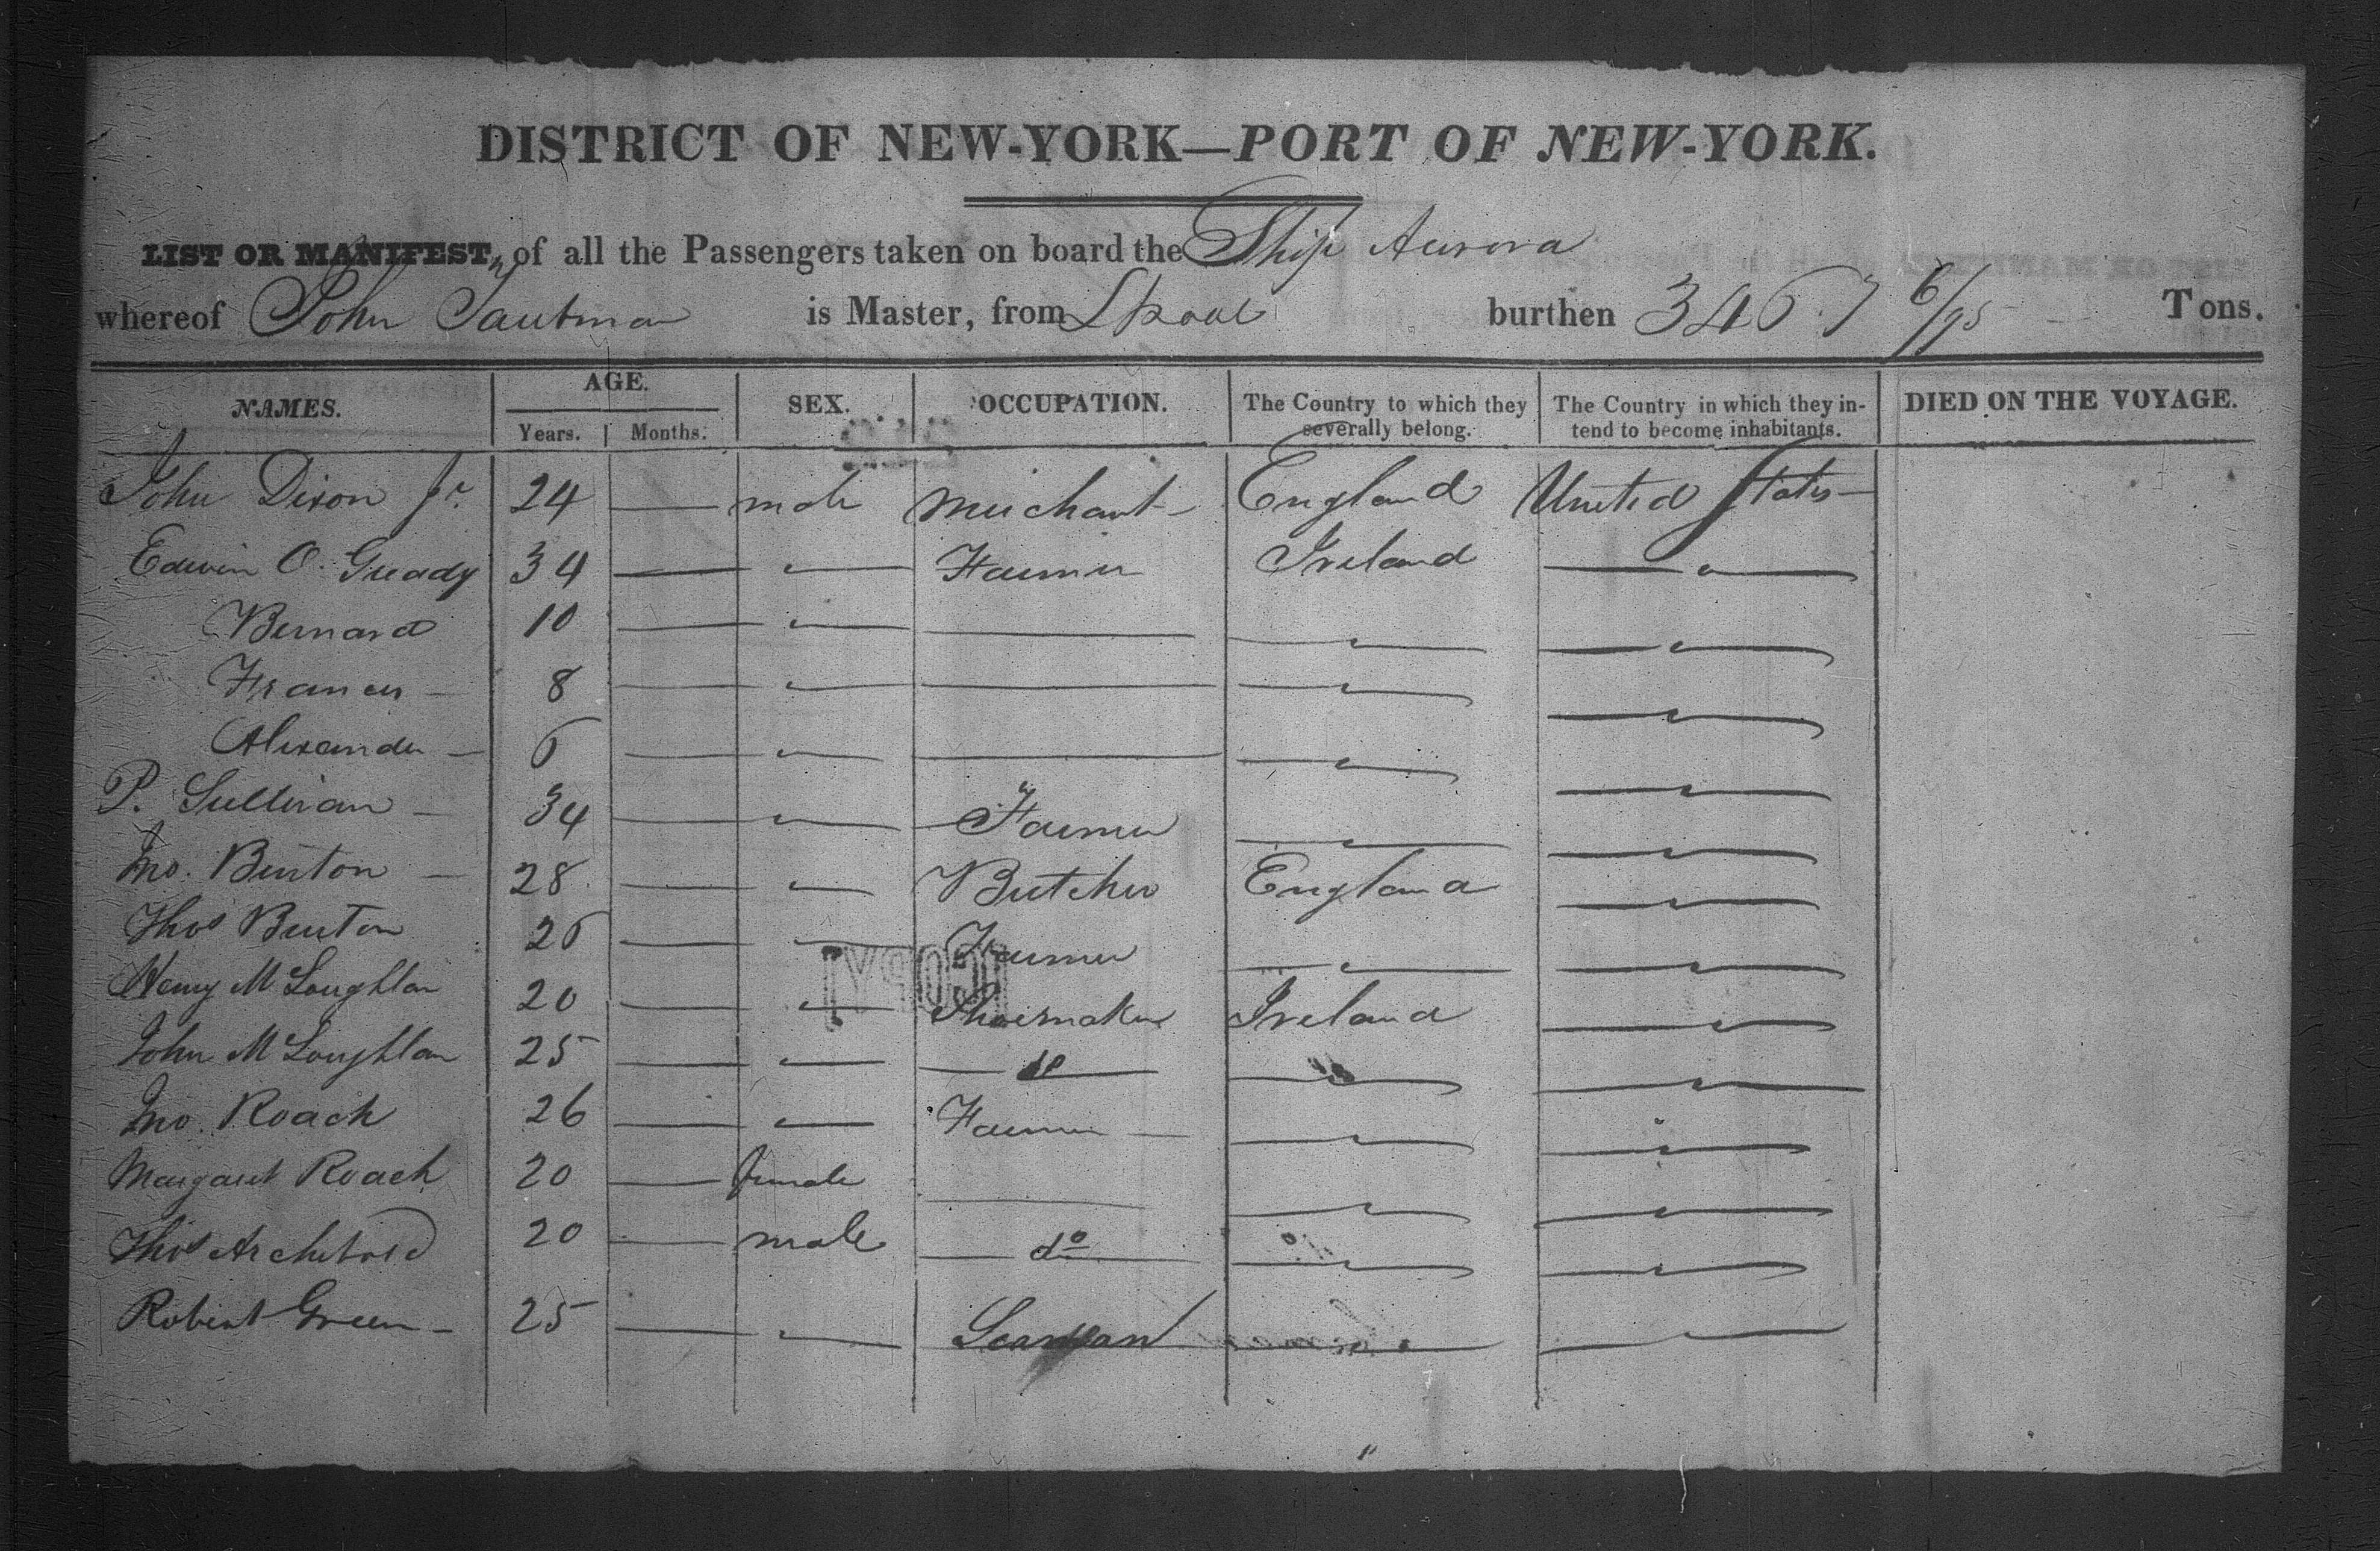 DISTRICT OF NEW-YORK—PORT OF NEW-YORK.
LIST OR MANIFEST, of all the Passengers taken on board the Ship Aurora
whereof John Tautman is Master, from Lpool burthen 346 6/95 Tons.
NAMES. AGE. Years. Months. SEX. OCCUPATION. The Country to which they severally belong. The Country in which they intend to become inhabitants. DIED ON THE VOYAGE.
John Dixon Jr. 24 — male Merchant England United States
Edwin O. Gready 34 — " Farmer Ireland — " —
Bernard 10 — " — " "
Francis 8 — " — " "
Alexander 6 — " — " "
P. Sullivan 34 — " Farmer " "
Jno. Burton 28 — " Butcher England "
Thos Burton 26 — " Farmer " "
COPY
Henry McLoughlan 20 — " Shoemaker Ireland "
John McLoughlan 25 — " do " "
Jno. Roach 26 — " Farmer " "
Margaret Roach 20 — female — " "
Thos Archibold 20 — male do " "
Robert Green 25 — " Seaman " "